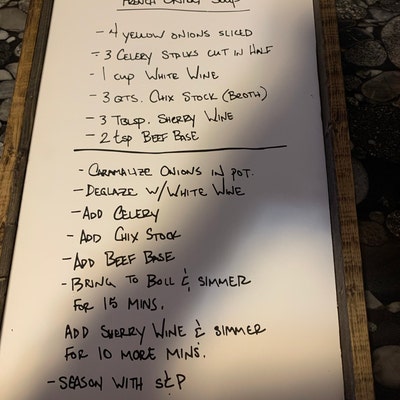 French Onion Soup
- 4 yellow onions sliced
- 3 Celery Stalks cut in Half
- 1 cup White Wine
- 3 qts. Chix Stock (Broth)
- 3 Tblsp. Sherry Wine
- 2 tsp Beef Base
- Caramalize Onions in pot.
- Deglaze w/White Wine
- Add Celery
- Add Chix Stock
- Add Beef Base
- Bring to Boil & simmer
for 15 mins.
Add Sherry Wine & simmer
for 10 more mins.
- Season with S&P